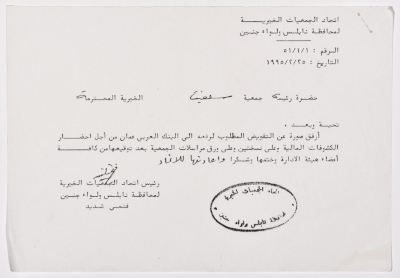 اتحاد الجمعيات الخيريـــة
لمحافظة نابلس ولواء جنـين
الرقـم : ٥١/١/١
التاريخ : ١٩٩٥/٢/٢٥
حضرة رئيسة جمعية سلفيت الخيرية المحترمة
تحية وبعـد ،
أرفق صورة عن التفويض المطلوب لرفعه الى البنك العربي عمان من أجل احضـار
الكشوفات المالية وعلى نسختين وعلى ورق مراسلات الجمعية بعد توقيعهامن كافـــة
أعضاء هيئة الادارة وختمها وشكرا واعادتها للاتحاد
رئيس اتحاد الجمعيات الخيرية
لمحافظة نابلس ولواء جنين
فتحي شديد
اتحاد الجمعيات الخيرية
لمحافظة نابلس ولواء جنين